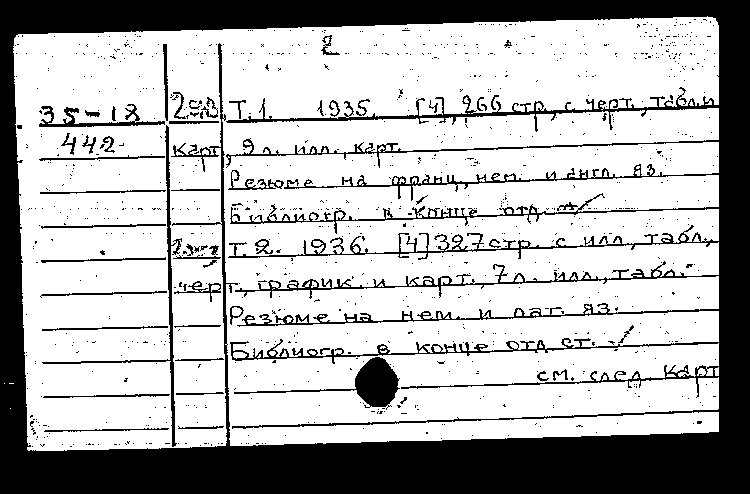 2
35-18 2экз. Т.1. 1935. [4], 266 стр, с черт., табл. и
442 карт, 9 л. илл., карт.
Резюме на франц, нем. и англ. яз.
Библиогр. в конце отд.
Т. 2. 1936. [4] 327 стр. с илл, табл.,
черт., график. и карт., 7 л. илл., табл.
Резюме на нем. и лат. яз.
Библиогр. в конце отд ст.
см. след. карт